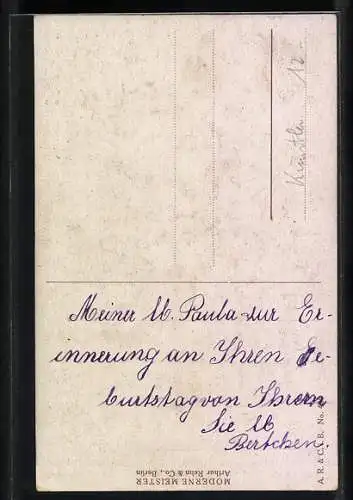 Künstler 12.-
Meiner lb. Paula zur Er-
innerung an Ihren Ge-
burtstag von Ihrem
Sie lb
Bertchen.
MODERNE MEISTER
Arthur Rehn & Co., Berlin
A. R. & C. i. B. No.